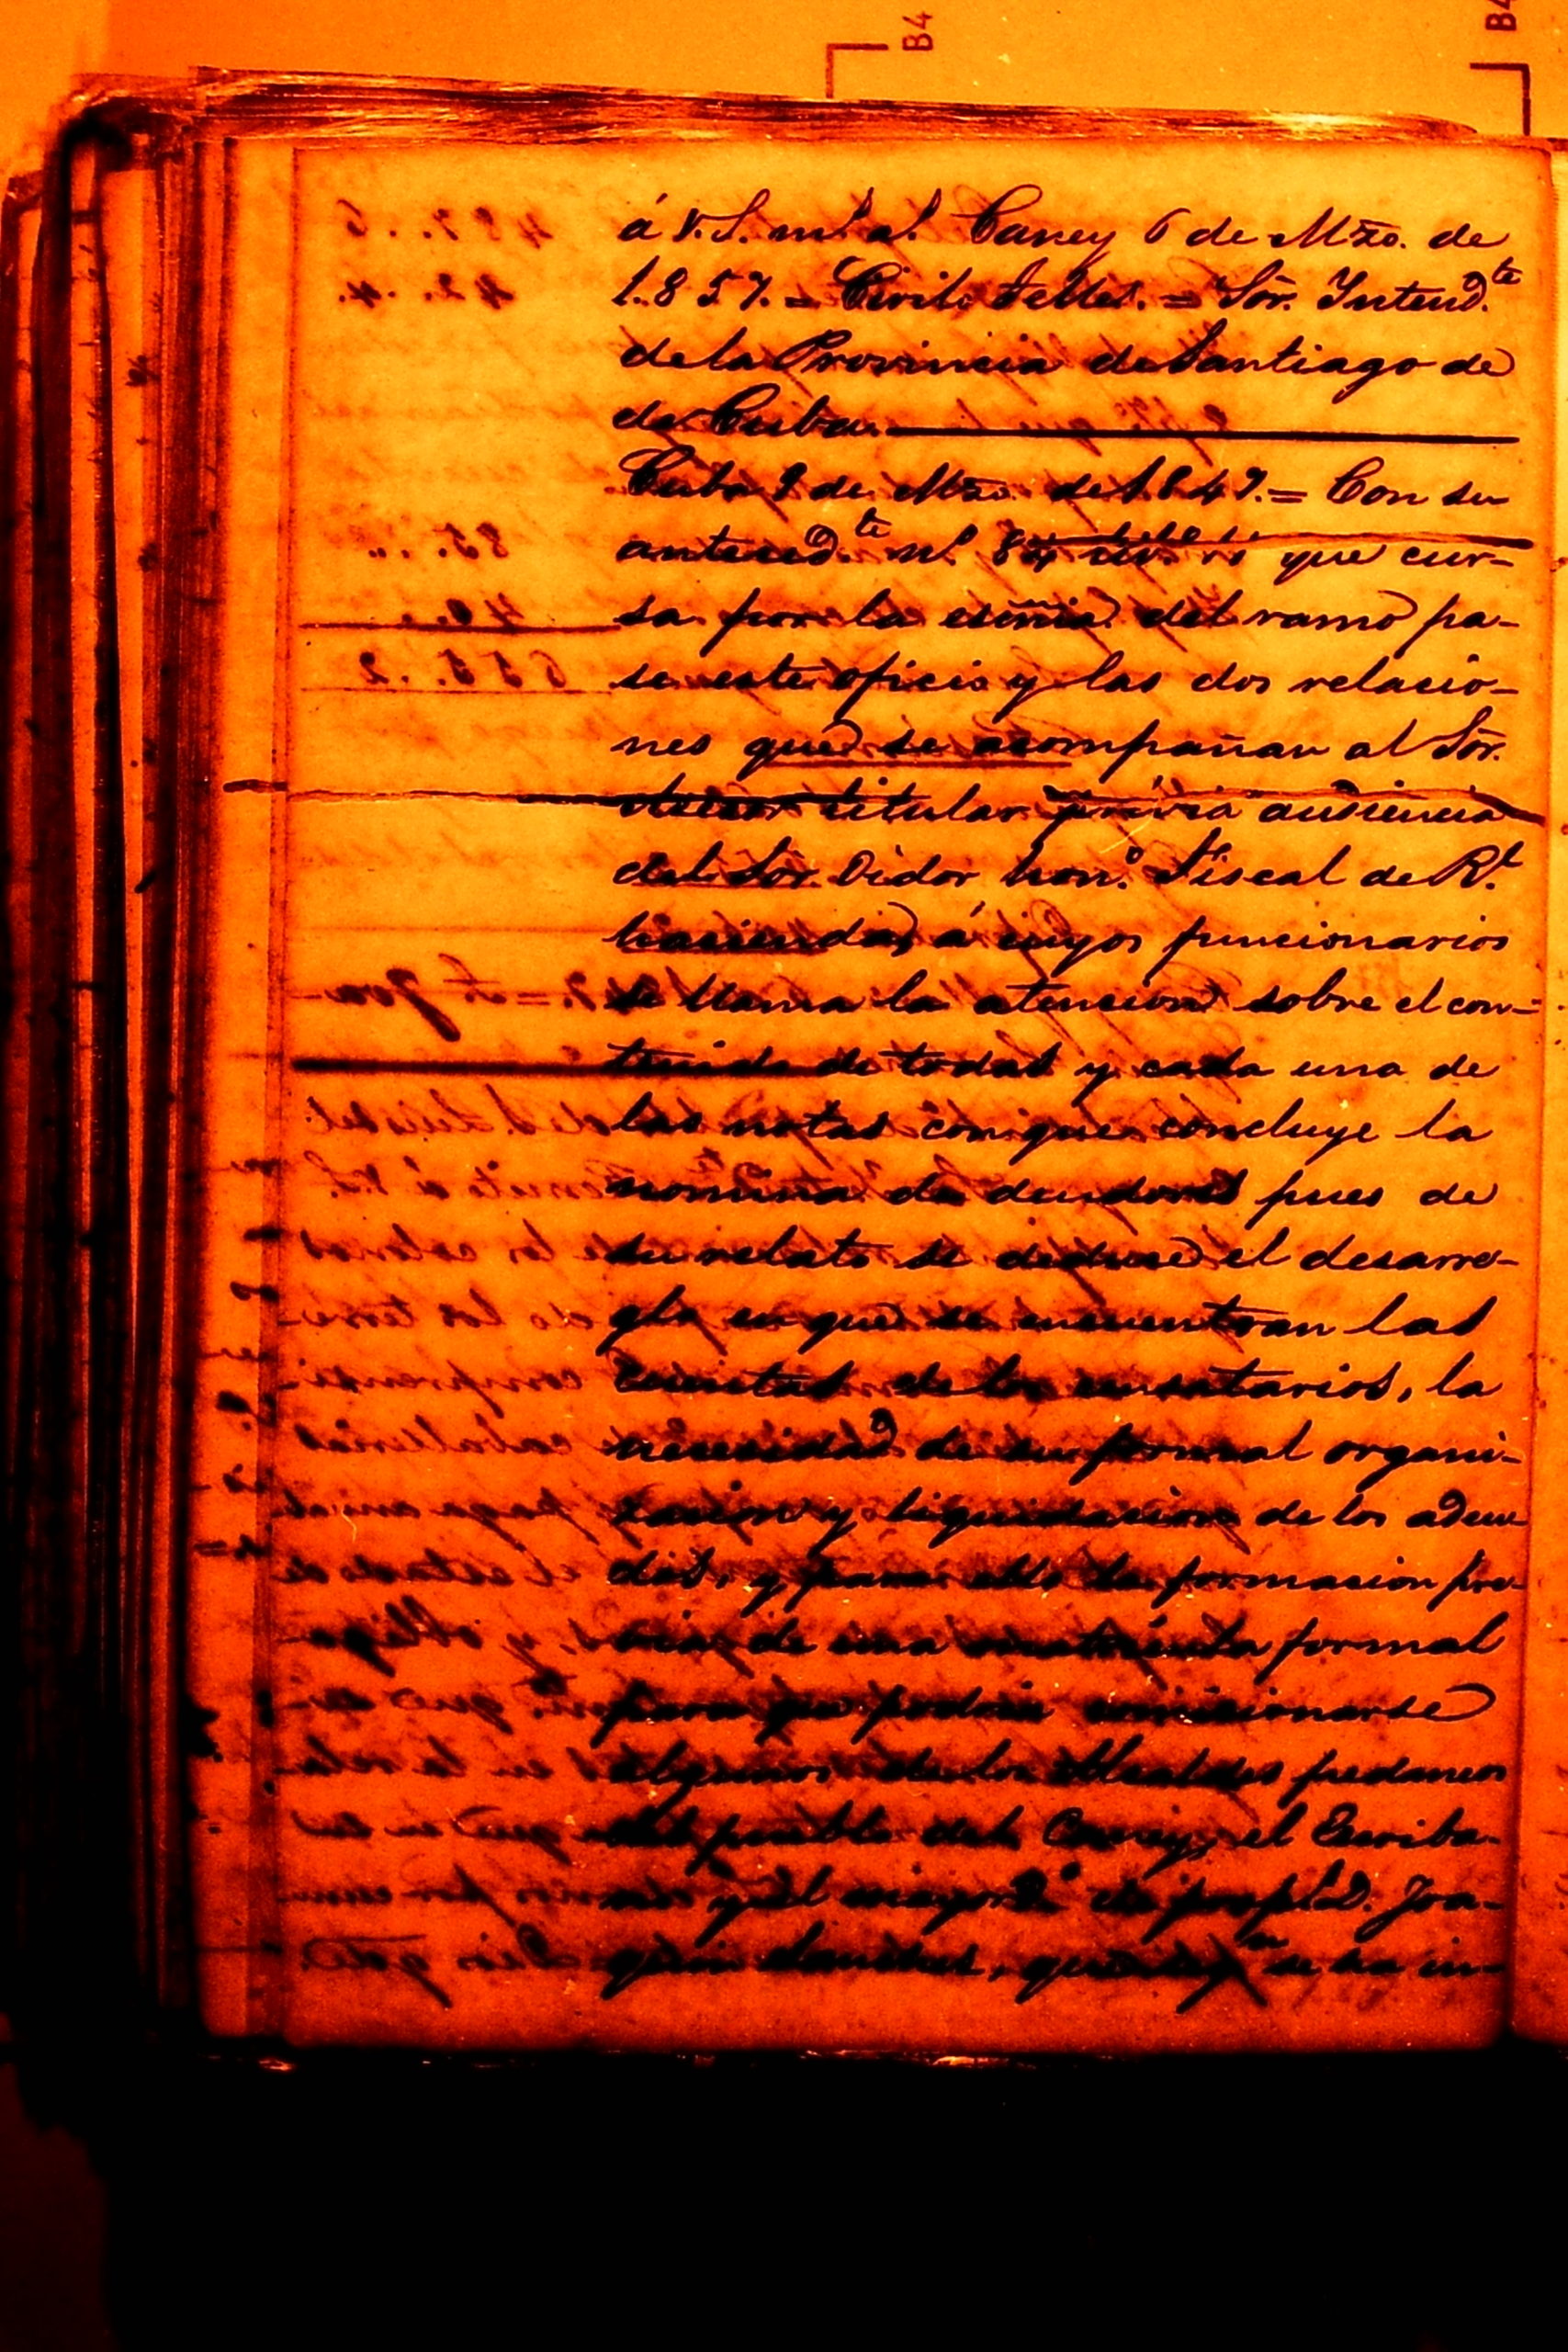 B4
B4
á V.S. m.s a.s Caney 6 de Mzo. de
1.857. = Cirilo Telles. = Sõr. Intend.te
de la Provincia de Santiago de
de Cuba.
Cuba 9 de Mzo. de 1.847. = Con su
anteced.te n.o 84 que cur-
sa por la escñia del ramo pa-
se este oficio y las dos relacio-
nes que se acompañan al Sõr.
Asesor titular prévia audiencia
del Sõr. Oidor hon.o Fiscal de R.l
hacienda, á cuyos funcionarios
se llama la atencion sobre el con-
tenido de todas y cada una de
las notas con que concluye la
nomina de deudores pues de
su relato se deduce el desarre-
glo en que se encuentran las
cuentas de los censatarios, la
necesidad de su formal organi-
zacion y liquidacion de los adeu-
dos, y para ello la formacion pre-
via de una matrícula formal
para que podria comicionarse
algunos de los Alcaldes pedaneos
del pueblo del Caney, el Escriba-
no y el mayord.o de prop.s D. Joa-
quin que se ha in-